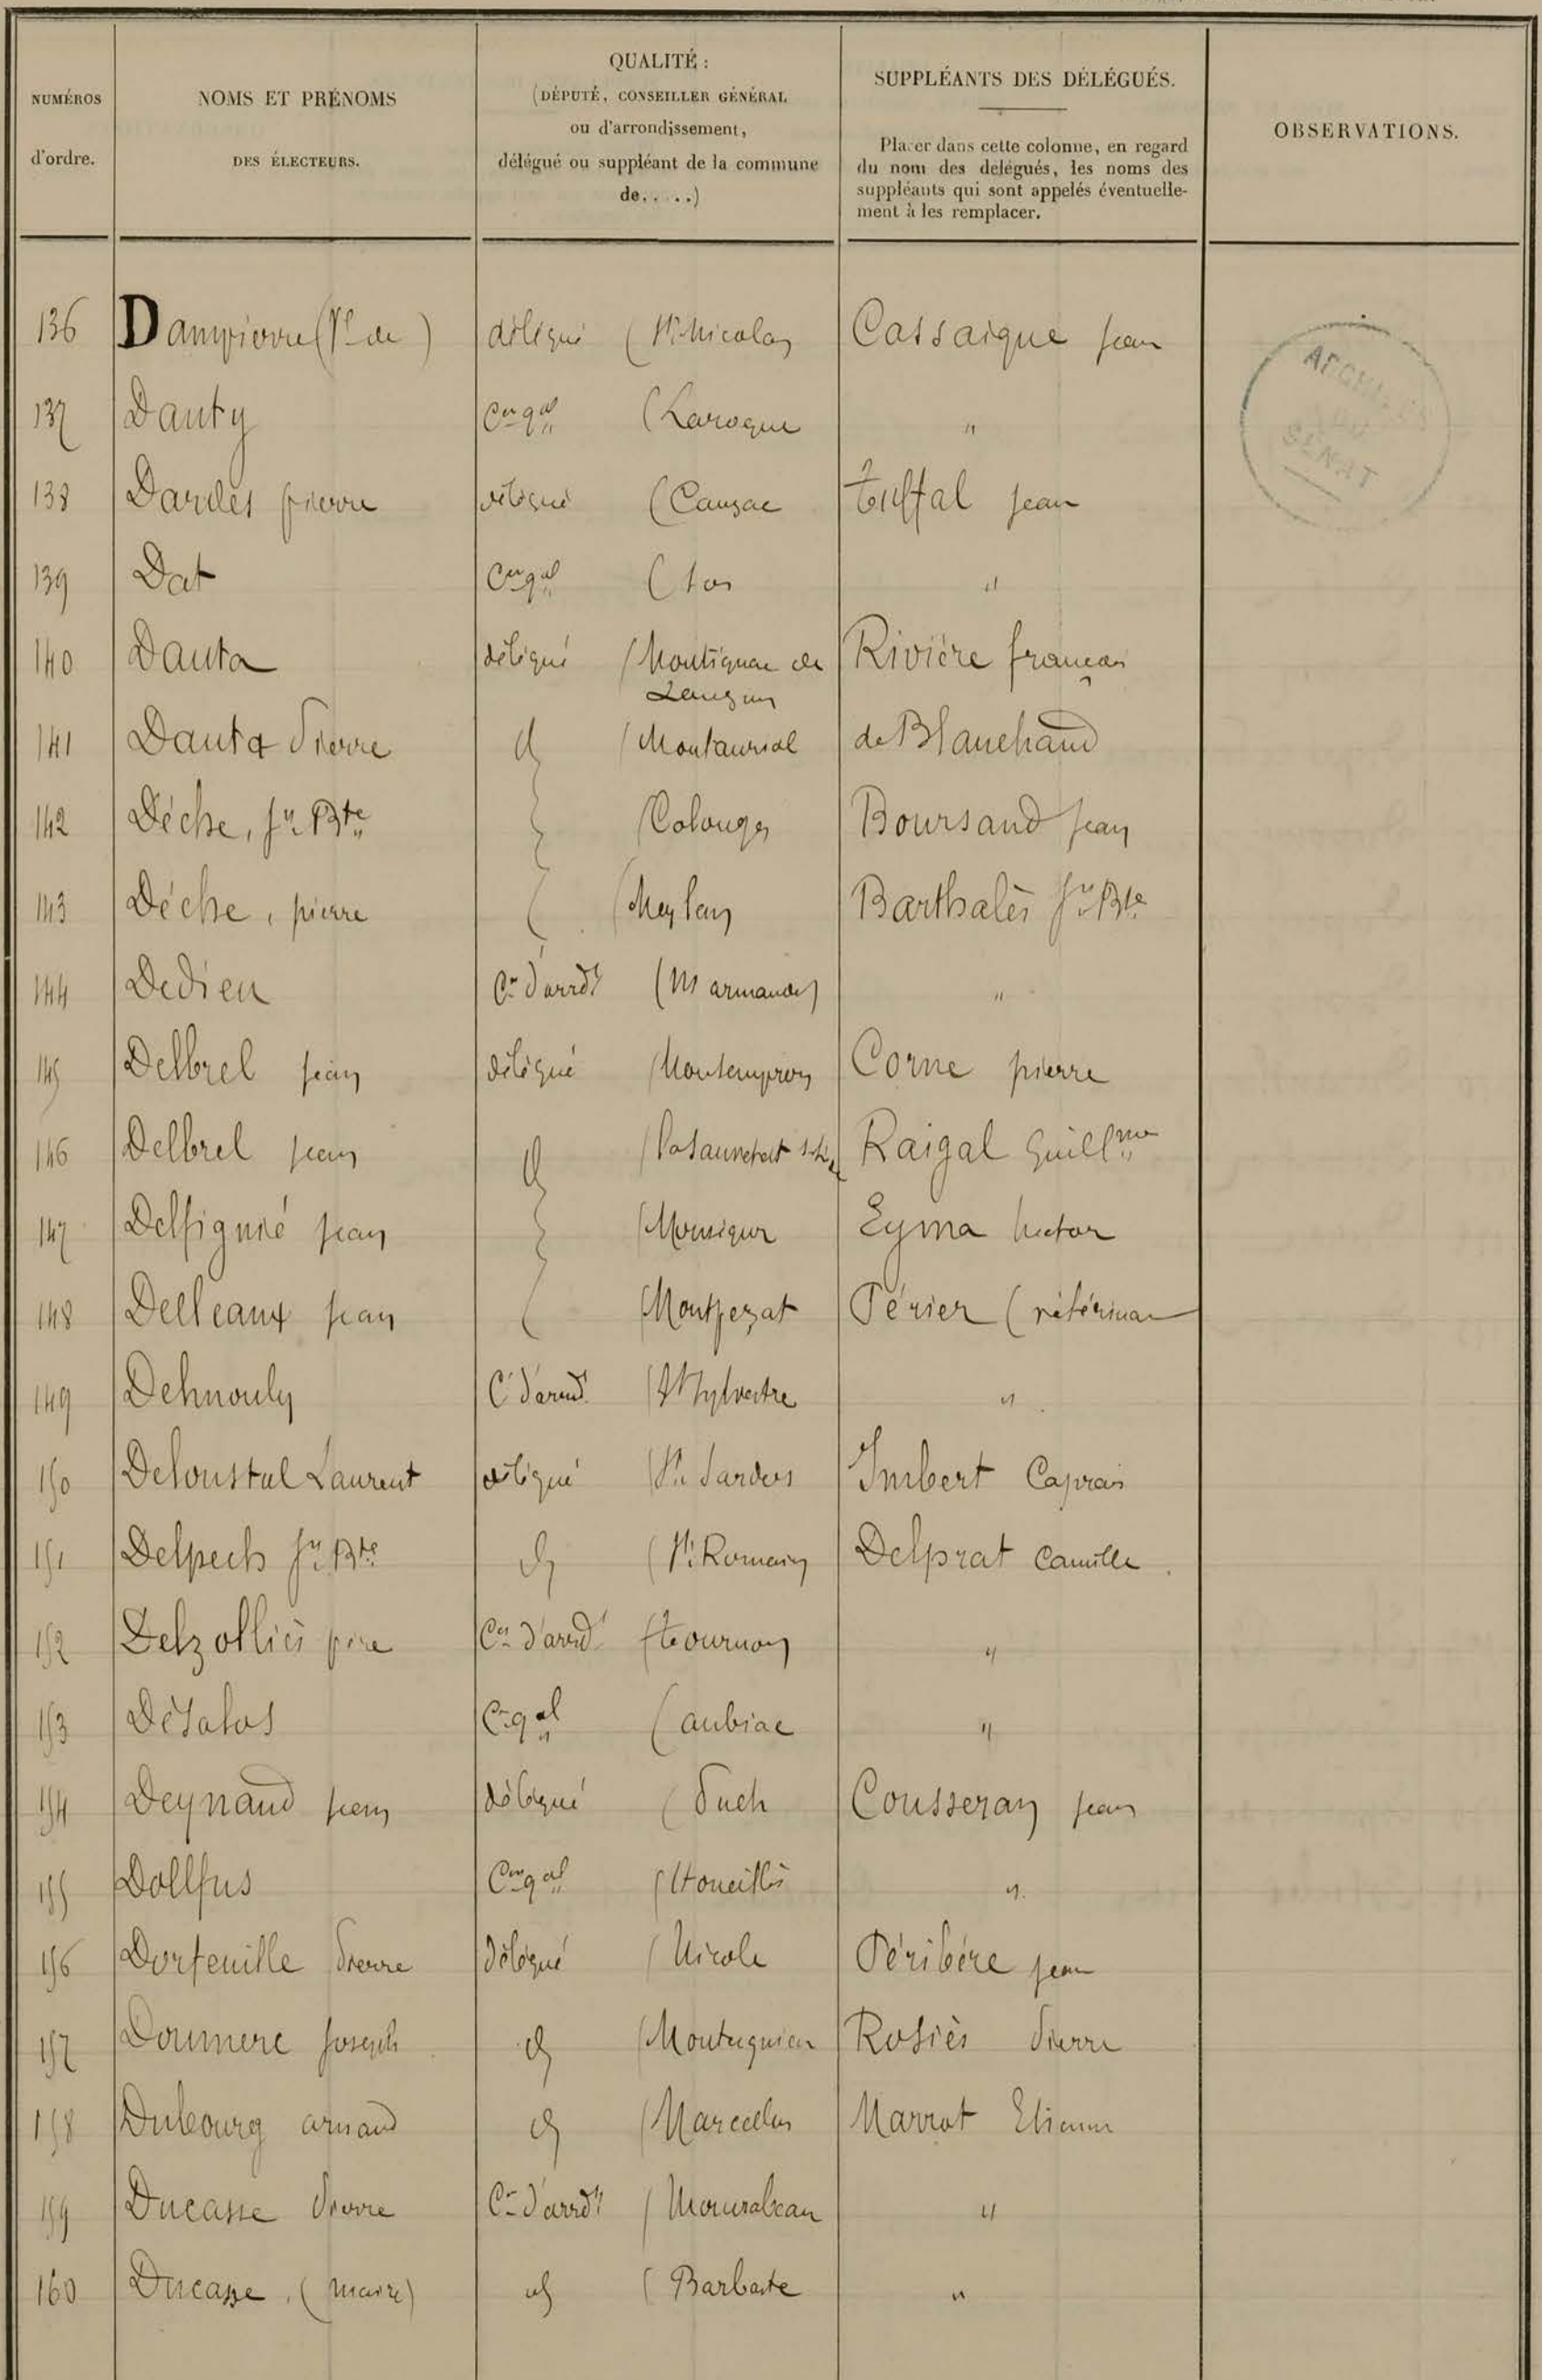 NUMÉROS
d'ordre.
NOMS ET PRÉNOMS
DES ÉLECTEURS.
QUALITÉ :
(DÉPUTÉ, CONSEILLER GÉNÉRAL
ou d'arrondissement,
délégué ou suppléant de la commune
de.....)
SUPPLÉANTS DES DÉLÉGUÉS.
Placer dans cette colonne, en regard
du nom des délégués, les noms des
suppléants qui sont appelés éventuelle-
ment à les remplacer.
OBSERVATIONS.
ARCHIVES
DU
SENAT
136 Dampierre (Vte de) délégué (St Nicolas Cassaigne Jean
137 Dauty Cer gal (Laroque "
138 Dardés pierre délégué (Cauzac Tuffal Jean
139 Dat Cer gal (Sos "
140 Dauta délégué (Montignac de Rivière françois
Lauzun
141 Dauta Pierre d (Montauriol de Blanchaud
142 Déche, Jn Bte (Colonges Boursaud Jean
143 Déche, pierre (Meylan Barthalès Jn Bte
144 Dedieu Cer d'arrdt (Marmande) "
145 Delbrel jean délégué (Montempron Corne pierre
146 Delbrel jean d (Lasauvetat Raigal Guillme
147 Delfignié jean (Monségur Eyma hector
148 Delleaux jean (Montpezat Périer (vétérinar
149 Delmouly Cer d'arrdt (St Sylvestre "
150 Deloustal Laurent délégué (St Sardos Imbert Caprais
151 Delpech Jn Bte d (St Romain Delprat Camille
152 Delzolliès père Cer d'arrdt (Tournon "
153 Désalos Cer gal (aubiac "
154 Deynaud jean délégué (Puch Cousseran jean
155 Dollfus Cer gal (Houeillès "
156 Dorfeuille Pierre délégué (Nicole Péribére jean
157 Doumerc Joseph d (Montagnien Rosiès Pierre
158 Dubourg arnaud d (Marcellus Marrot Etienne
159 Ducasse Pierre Cer d'arrdt (Moncrabeau "
160 Ducasse (maire) d (Barbaste "